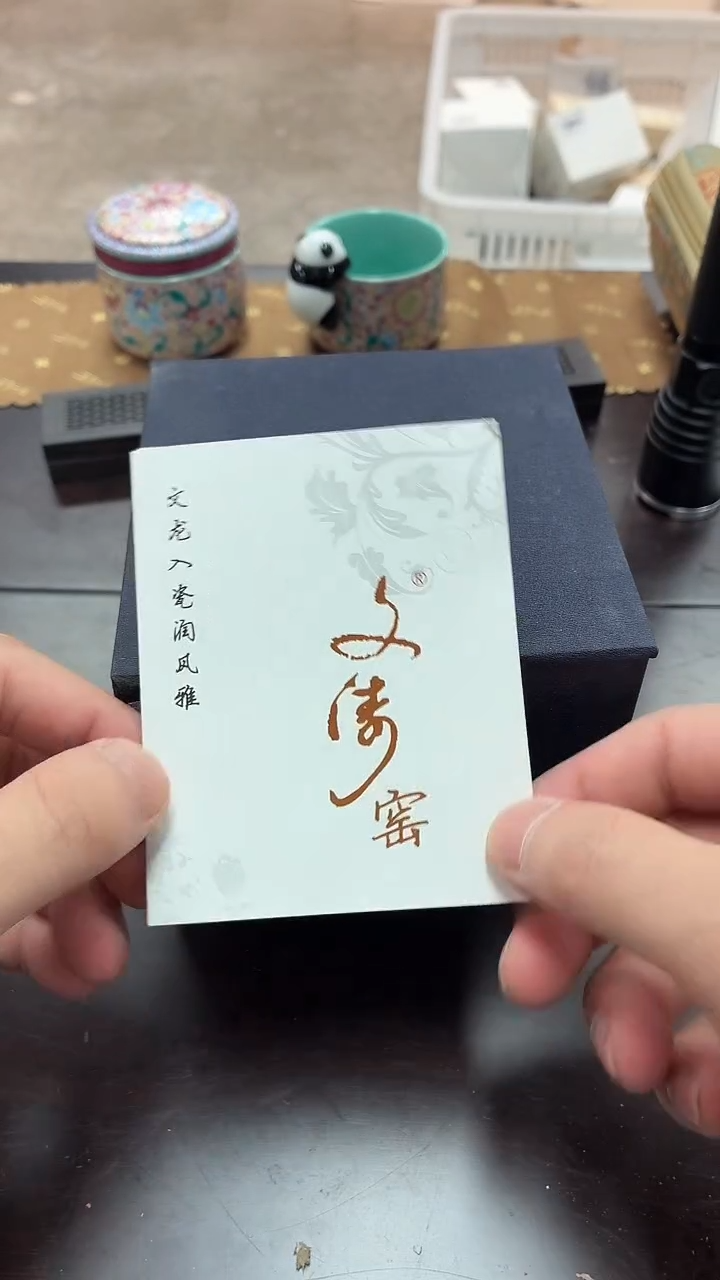 文龙入瓷润风雅
文涛窑
®